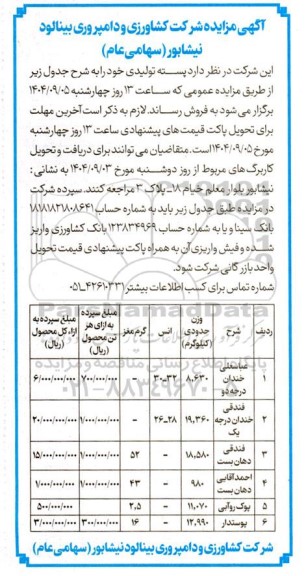 آگهی مزایده شرکت کشاورزی و دامپروری بینالود
نیشابور (سهامی عام)
این شرکت در نظر دارد پسته تولیدی خود را به شرح جدول زیر
از طریق مزایده عمومی که ساعت ۱۳ روز چهارشنبه ۱۴۰۴/۰۹/۰۵
برگزار می شود به فروش رساند. لازم به ذکر است آخرین مهلت
برای تحویل پاکت قیمت های پیشنهادی ساعت ۱۳ روز چهارشنبه
مورخ ۱۴۰۴/۰۹/۰۵ است. متقاضیان می توانند برای دریافت و تحویل
کاربرگ های مربوط از روز دوشنبه مورخ ۱۴۰۴/۰۹/۰۳ به نشانی :
نیشابور بلوار معلم خیام ۱۸_ پلاک ۳ مراجعه کنند. سپرده شرکت
در مزایده طبق جدول زیر باید به شماره حساب
بانک سینا و یا به شماره حساب ۱۲۳۸۳۴۹۶۹ بانک کشاورزی واریز
شده و فیش واریزی آن به همراه پاکت پیشنهادی قیمت تحویل
واحد بازرگانی شرکت شود.
شماره تماس برای کسب اطلاعات بیشتر: ۴۲۶۱۰۳۳۱-۰۵۱
ردیف شرح وزن حدودی (کیلوگرم) انس گرم مغز مبلغ سپرده به ازای هر تن محصول (ریال) مبلغ سپرده به ازاء کل محصول (ریال)
۱ عباسعلی خندان درجه دو ۸,۶۳۰ ۳۲-۳۰ - ۷۰۰/۰۰۰/۰۰۰ ۶/۰۰۰/۰۰۰/۰۰۰
۲ فندقی خندان درجه یک ۱۹,۳۶۰ ۲۸-۲۶ - ۱/۰۰۰/۰۰۰/۰۰۰ ۲۰/۰۰۰/۰۰۰/۰۰۰
۳ فندقی دهان بست ۱۸,۵۸۰ - ۵۲ ۱/۰۰۰/۰۰۰/۰۰۰ ۱۵/۰۰۰/۰۰۰/۰۰۰
۴ احمدآقایی دهان بست ۹۸۰ - ۴۳ ۱/۰۰۰/۰۰۰/۰۰۰ ۱/۰۰۰/۰۰۰/۰۰۰
۵ پوک روآبی ۱۱,۰۷۰ - ۲,۵ ۵۰۰/۰۰۰/۰۰۰
۶ پوستدار ۱۲,۹۹۰ - ۱۶ ۳۰۰/۰۰۰/۰۰۰ ۳/۰۰۰/۰۰۰/۰۰۰
شرکت کشاورزی و دامپروری بینالود نیشابور (سهامی عام)